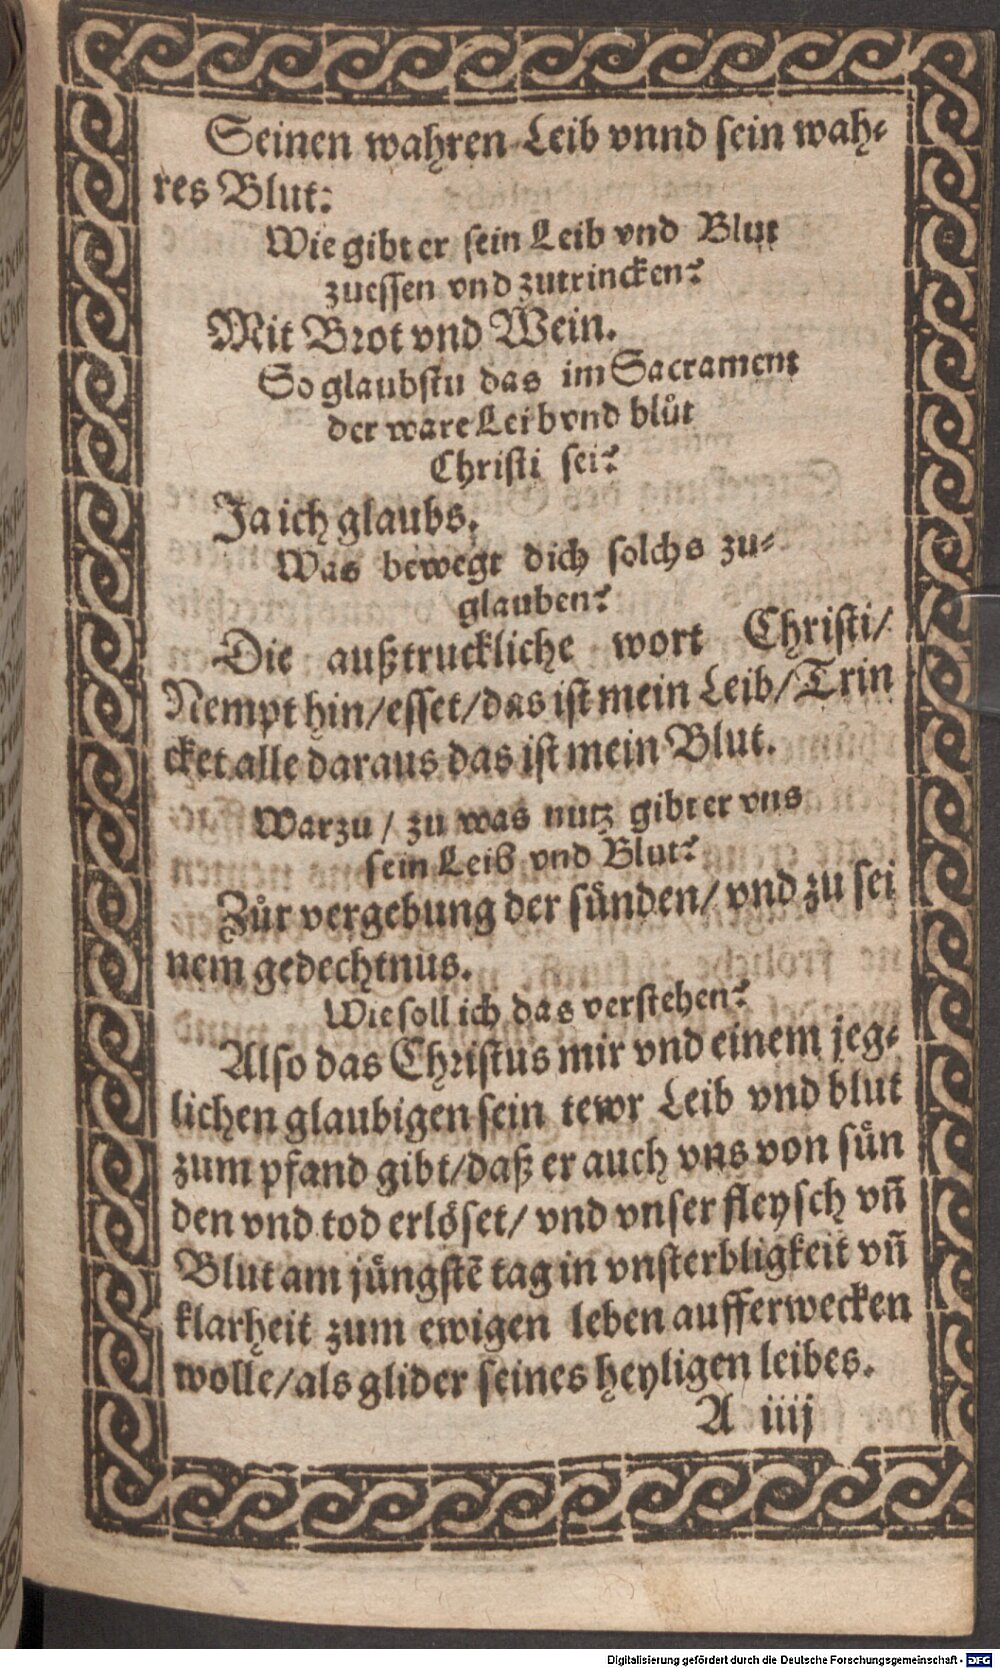 Seinen wahren Leib vnnd sein wah⸗
res Blut:
Wie gibt er sein Leib vnd Blut
zuessen vnd zutrincken?
Mit Brot vnd Wein.
So glaubstu das im Sacrament
der ware Leib vnd blůt
Christi sei?
Ja ich glaubs.
Was bewegt dich solchs zu⸗
glauben?
Die außtruckliche wort Christi/
Nempt hin/esset/das ist mein Leib/Trin
cket alle daraus das ist mein Blut.
Warzu / zu was nutz gibt er vns
sein Leib vnd Blut?
Zůr vergebung der sünden/ vnd zu sei
nem gedechtnus.
Wie soll ich das verstehen?
Also das Christus mir vnd einem jeg⸗
lichen glaubigen sein tewr Leib vnd blut
zum pfand gibt/daß er auch vns von sün
den vnd tod erlöset/ vnd vnser fleysch vñ
Blut am jüngstē tag in vnsterbligkeit vñ
klarheit zum ewigen leben aufferwecken
wolle/als glider seines heyligen leibes.
A iiij
Digitalisierung gefördert durch die Deutsche Forschungsgemeinschaft - DFG